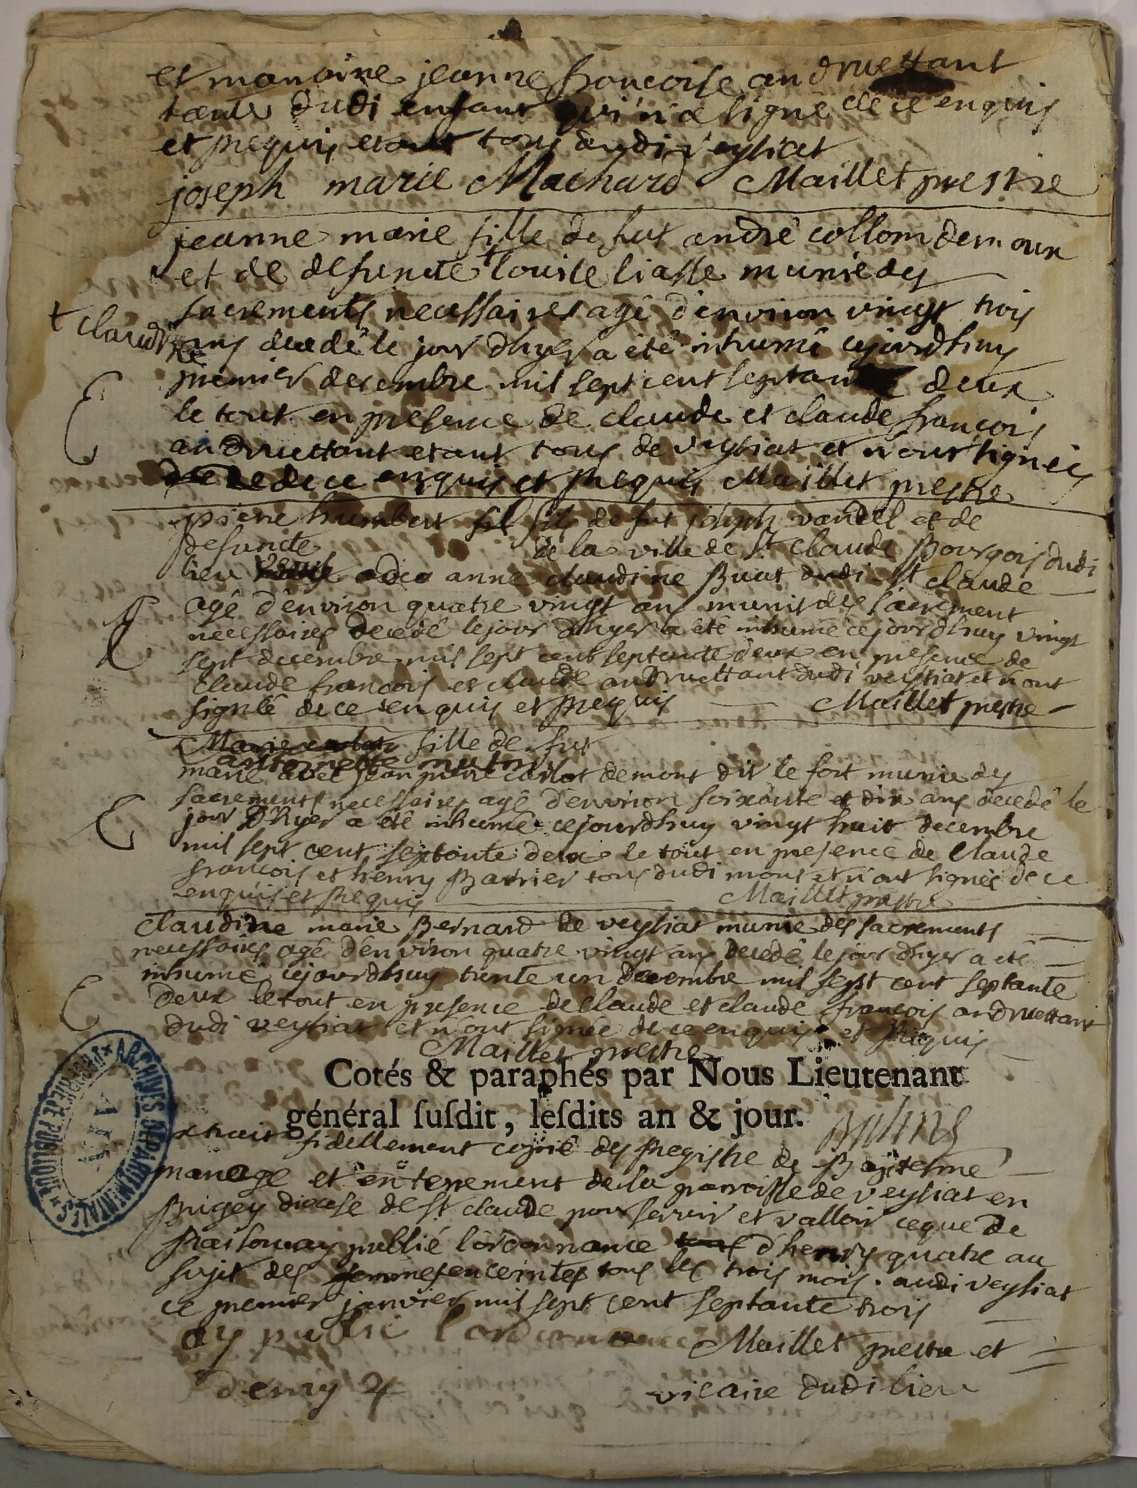 et maraine jeanne francoise andruettant
tante dudi enfant qui n'a signé de ce enquis
et requis etant tous dudi veyliat
joseph marie Machard Maillet prestre
jeanne marie fille de fut andré collom demoux
et de defuncte + louise liasse munie des
+ claudine
sacrements necessaires agé d'environ vingt trois
ans decedé le jour d'hyer a été inhumé cejourdhuy
premier decembre mil sept cent septante deux
le tout en presence de claude et claude françois
andruettant etant tous de veyliat et n'ont signés
de ce enquis et requis Maillet prestre
pierre humbert fil de fut joseph vandel et de
defuncte de la ville de St Claude Bourgois dudi
lieu anne claudine Buat dudi St claude
agé d'environ quatre vingt an munis des sacrement
necessaires decedé le jour d'hyer a été inhumé cejourdhuy vingt
sept decembre mil sept cent septante deux en presence de
claude françois et claude andruettant dudi veyliat et n'ont
signéé de ce enquis et requis Maillet prestre
fille de fut
marie jean pierre carlot demont dit le fort munie des
sacrements necessaires agé d'environ soixante et dix ans decedé le
jour d'hyer a été inhumé cejourdhuy vingt huit decembre
mil sept cent septante deux le tout en presence de claude
francois et henry Barrier tous dudi mont et n'ont signés de ce
enquis et requis Maillet prestre
claudine marie Bernard de veyliat munie des sacrements
necessaires agé d'environ quatre vingt an decedé le jour d'hyer a été
inhumé cejourdhuy trente un decembre mil sept cent septante
deux le tout en presence de claude et claude françois andruettant
dudi veyliat et n'ont signée de ce enquis et requis
Maillet prestre
Cotés & paraphés par Nous Lieutenant
général ſuſdit, leſdits an & jour.
extrait fidellement copié des registre de Baptesme
mariage et enterrement de la parroisse de veyliat en
Bugey diocese de St claude pour servir et valloir ce que de
raison ay publié l'ordonnance d'henry quatre au
sujet des femmes enceintes tous les trois mois. audi veyliat
ce premier janvier mil sept cent septante trois
ay publié l'ordonnance Maillet prestre et
d'enry 4 vicaire dudi lieu
ARCHIVES DÉPARTEMENTALES